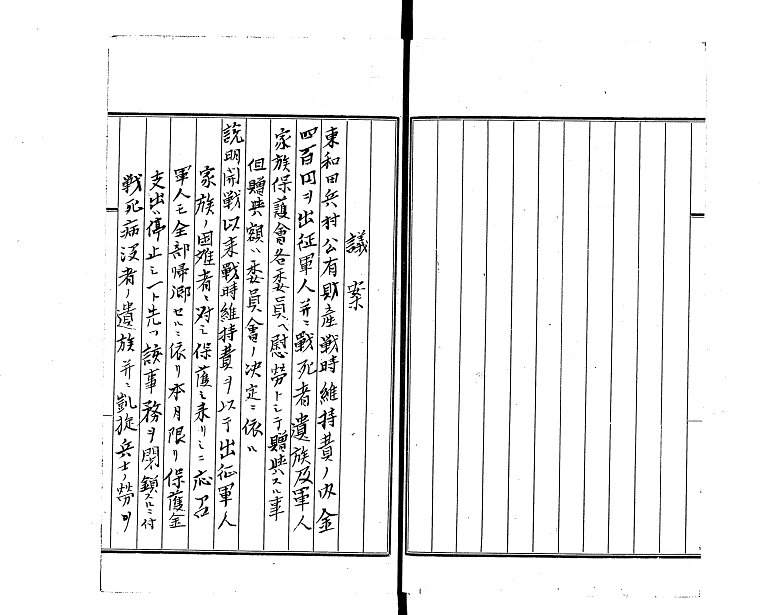 議案
東和田兵村公有財産戦時維持費ノ内金
四百円ヲ出征軍人并ニ戦死者遺族及軍人
家族保護會各委員ヘ慰労トシテ贈與スル事
但贈與額ハ委員會ノ决定ニ依ル
説明開戦以来戦時維持費ヲ以テ出征軍人
家族ノ困難者ニ対シ保護シ来リシニ応召
軍人モ全部帰郷セルニ依リ本月限リ保護金
支出ハ停止シ一ト先ツ該事務ヲ閉鎖スルニ付
戦死病没者ノ遺族并ニ凱旋兵士ノ労ヲ